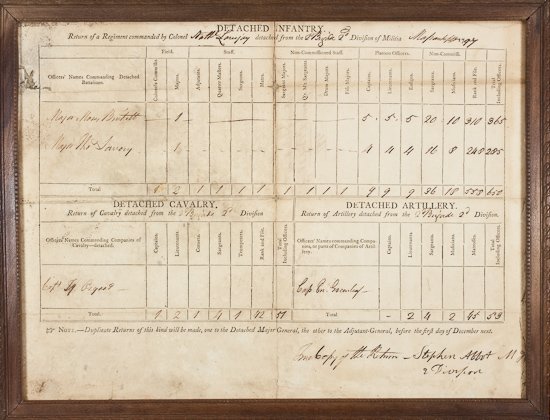 DETACHED INFANTRY.
Return of a Regiment commanded by Colonel detached from the 2 Brigde 2d Division of Militia
Field. Staff. Non-Commissioned Staff. Platoon Officers. Non-Commiss.
Officers' Names Commanding Detached Battalions. Majors. Adjutants. Quarter-Masters. Surgeons. Mates. Sergeant Majors. Drum Majors. Fife Majors. Captains. Lieutenants. Ensigns. Sergeants. Musicians. Rank and File. Total Including Officers.
Major Moses 1 5 5 5 20 10 310 365
Major Thos Savory 1 4 4 4 16 8 248 285
Total 1 2 1 1 1 1 1 1 1 1 9 9 9 36 18 558 650
DETACHED CAVALRY.
Return of Cavalry detached from the 2 Brigade 2d Division
Officers' Names Commanding Companies of Cavalry—detached. Captains. Lieutenants. Cornets. Sergeants. Trumpeters. Rank and File. Total Including Officers.
Capt Osgood
Total. 1 2 1 4 1 42 51
DETACHED ARTILLERY.
Return of Artillery detached from the 2 Brigade 2d Division.
Officers' Names commanding Companies, or parts of Companies of Artillery. Captains. Lieutenants. Sergeants. Musicians. Matrosses. Total Including Officers.
Capt En. Greenleaf
Total. - 2 4 2 45 53
☞ NOTE.—Duplicate Returns of this kind will be made, one to the Detached Major General, the other to the Adjutant-General, before the first day of December next.
True Copy of the Return — Stephen Abbot M G
2 Division